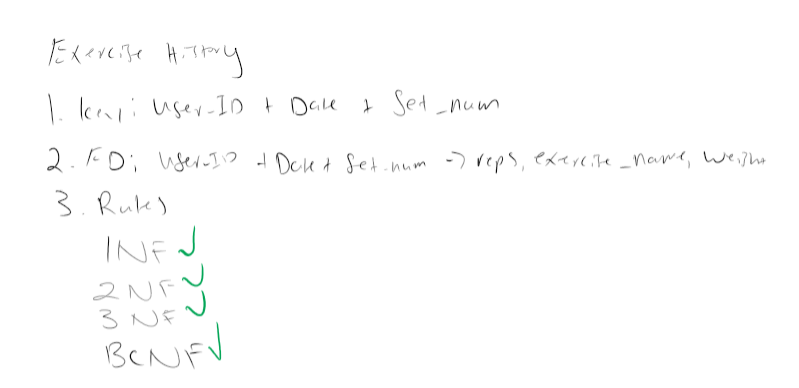 Exercise History
1. key: User_ID + Date + Set_num
2. FD: User_ID + Date + Set_num -> reps, exercise_name, weight
3. Rules
1NF ✓
2NF ✓
3NF ✓
BCNF ✓